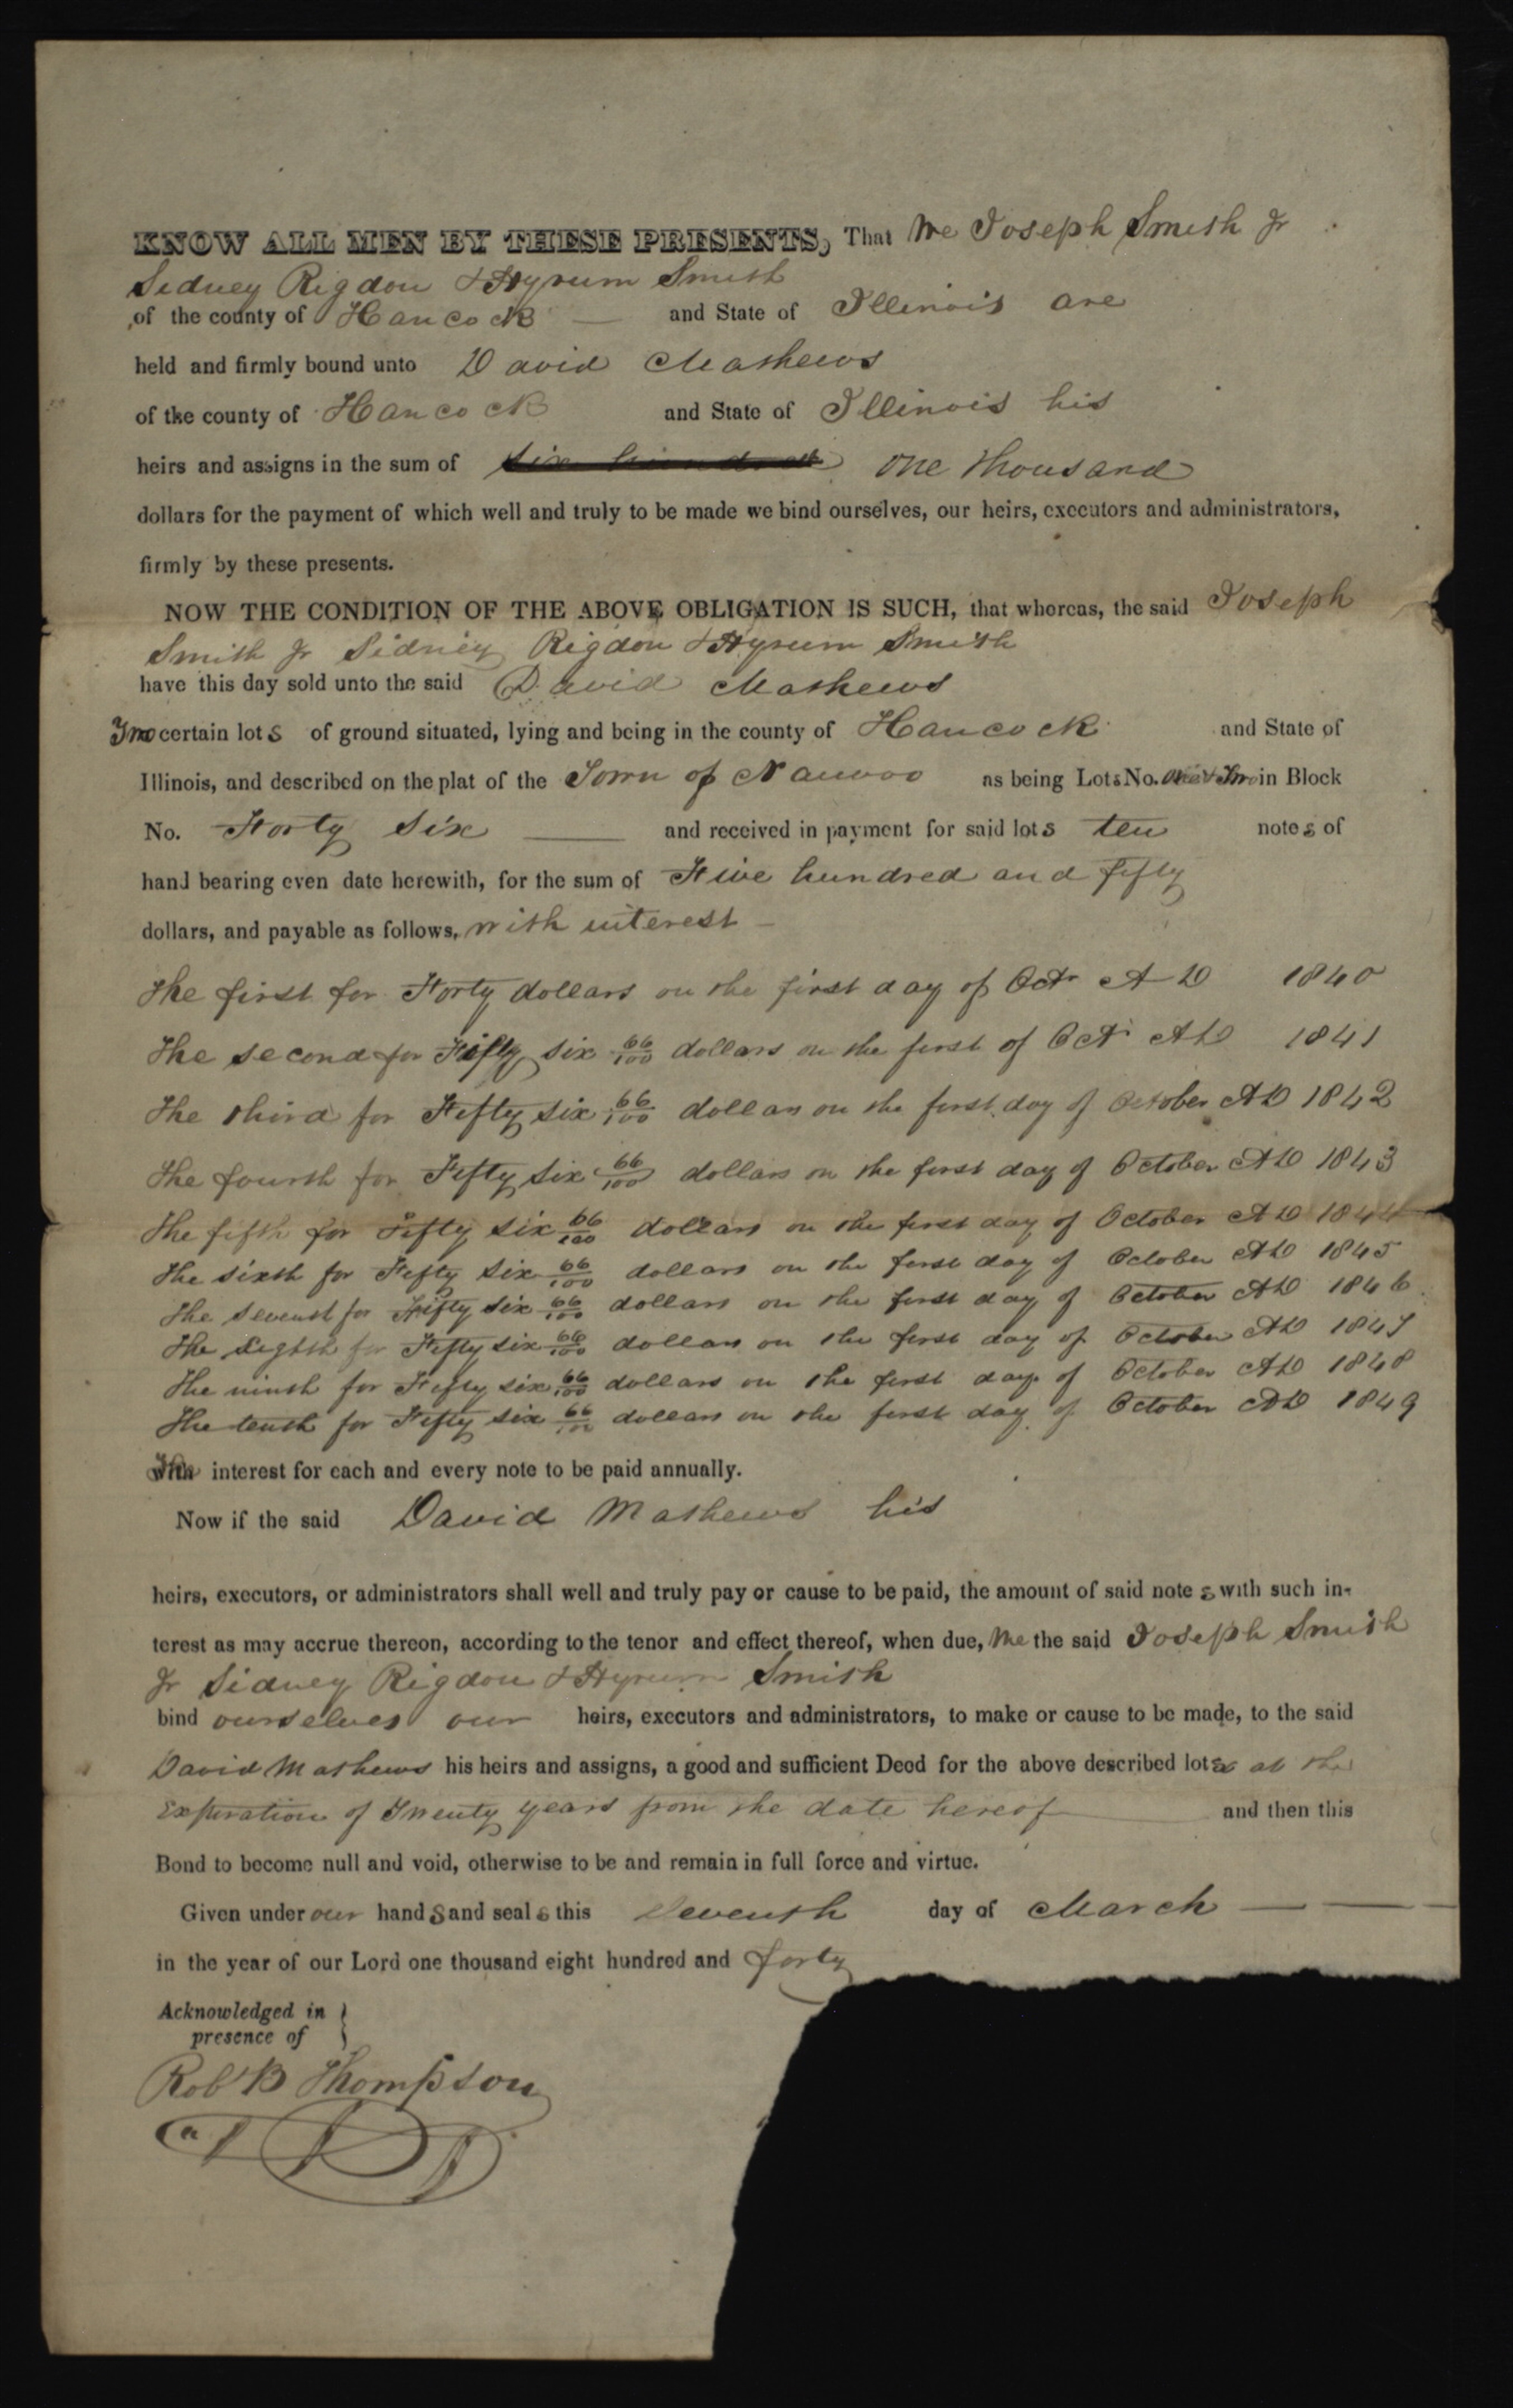 KNOW ALL MEN BY THESE PRESENTS, That We Joseph Smith Jr
Sidney Rigdon & Hyrum Smith
of the county of Hancock — and State of Illinois are
held and firmly bound unto David Mathews
of the county of Hancock and State of Illinois his
heirs and assigns in the sum of six hundred one thousand
dollars for the payment of which well and truly to be made we bind ourselves, our heirs, executors and administrators,
firmly by these presents.
NOW THE CONDITION OF THE ABOVE OBLIGATION IS SUCH, that whereas, the said Joseph
Smith Jr Sidney Rigdon & Hyrum Smith
have this day sold unto the said David Mathews
Two certain lots of ground situated, lying and being in the county of Hancock and State of
Illinois, and described on the plat of the Town of Nauvoo as being Lots No. one & Two in Block
No. Forty Six — and received in payment for said lots ten notes of
hand bearing even date herewith, for the sum of Five hundred and fifty
dollars, and payable as follows, with interest —
The first for Forty dollars on the first day of Octr A D 1840
The second for Fifty six 66/100 dollars on the first of Octr AD 1841
The third for Fifty six 66/100 dollars on the first day of October AD 1842
The fourth for Fifty six 66/100 dollars on the first day of October AD 1843
The fifth for Fifty six 66/100 dollars on the first day of October AD 1844
The sixth for Fifty six 66/100 dollars on the first day of October AD 1845
The seventh for Fifty six 66/100 dollars on the first day of October AD 1846
The Eighth for Fifty six 66/100 dollars on the first day of October AD 1847
The ninth for Fifty six 66/100 dollars on the first day of October AD 1848
The tenth for Fifty six 66/100 dollars on the first day of October AD 1849
with interest for each and every note to be paid annually.
Now if the said David Mathews his
heirs, executors, or administrators shall well and truly pay or cause to be paid, the amount of said notes with such in-
terest as may accrue thereon, according to the tenor and effect thereof, when due, We the said Joseph Smith
Jr Sidney Rigdon & Hyrum Smith
bind ourselves our heirs, executors and administrators, to make or cause to be made, to the said
David Mathews his heirs and assigns, a good and sufficient Deed for the above described lots at the
Expiration of Twenty years from the date hereof — and then this
Bond to become null and void, otherwise to be and remain in full force and virtue.
Given under our hands and seals this Seventh day of March — —
in the year of our Lord one thousand eight hundred and forty
Acknowledged in }
presence of
Robt B Thompson